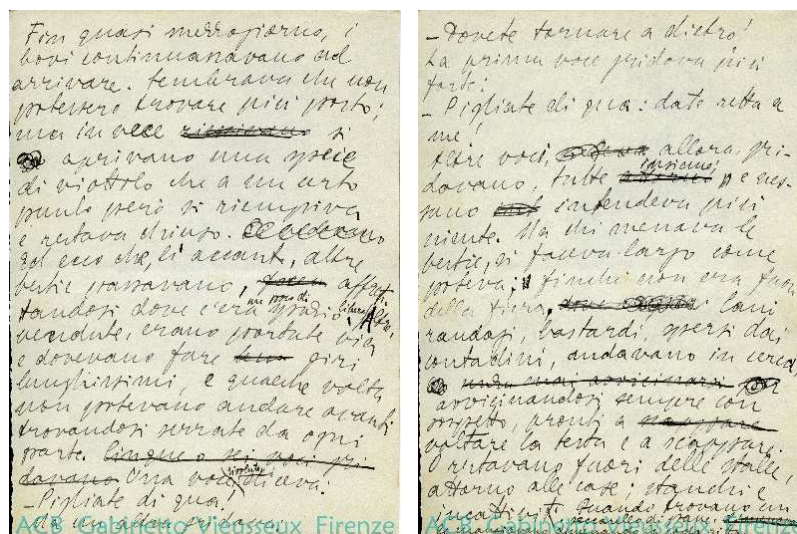 Fin quasi mezzogiorno, i
bovi continuavano ad
arrivare. Sembrava che non
potessero trovare più posto;
ma invece si
aprivano una specie
di viottolo che a un certo
punto però si riempiva
e restava chiuso.
Ed ecco che, lì accanto, altre
bestie passavano, affret-
tandosi dove c'era un poco di spazio libero. Altre,
vendute, erano portate via
e dovevano fare giri
lunghissimi, e qualche volta
non potevano andare avanti
trovandosi serrate da ogni
parte. Cinque o sei voci gri-
davano. Una voce diceva:
- Pigliate di qua!
Ma un'altra gridava:
ACB Gabinetto Vieusseux Firenze
- Dovete tornare a dietro!
La prima voce gridava più
forte:
- Pigliate di qua: date retta a
me!
Altre voci, allora, gri-
davano, tutte insieme; e nes-
suno intendeva più
niente. Ma chi menava le
bestie, si faceva largo come
poteva; finché non era fuori
della fiera. Cani
randagi, bastardi, spersi dai
contadini, andavano in cerca,
avvicinandosi sempre con
sospetto, pronti a
voltare la testa e a scappare.
O restavano fuori delle stalle,
attorno alle case; stanchi e
incattiviti. Quando trovano un
ACB Gabinetto Vieusseux Firenze